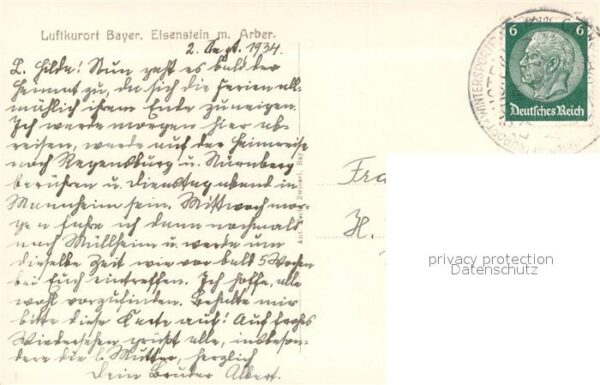 Luftkurort Bayer. Eisenstein m. Arber.
2. Sept. 1934.
L. Hilda! Nun geht es bald der
Heimat zu, da sich die Ferien all-
mählich ihrem Ende zuneigen.
Ich werde morgen hier ab-
reisen, werde auf der Heimreise
noch Regensburg u. Nürnberg
berühren u. Dienstag abend in
Mannheim sein. Mittwoch mor-
gen fahre ich dann nochmals
nach Müllheim u. werde um
dieselbe Zeit wie vor bald 5 Wochen
bei Euch eintreffen. Ich hoffe, alle
wohl vorzufinden. Behalte mir
bitte diese Karte auf! Auf frohes
Wiedersehen grüßt alle, insbeson-
dere die l. Mutter, herzlich
Dein Bruder Albert.
Zwiesel, Bay
6 6
Deutsches Reich
WINTERSPORT
Fra
H.
privacy protection
Datenschutz